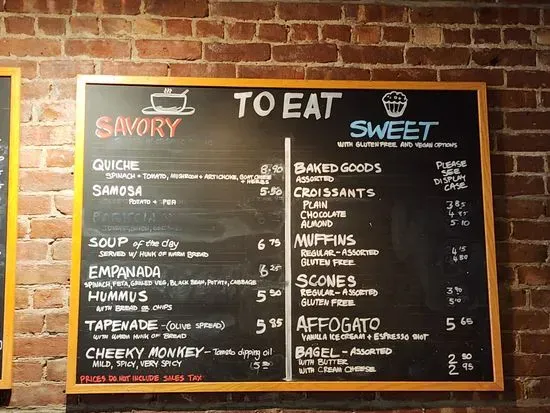 TO EAT
SAVORY
QUICHE 8.90
SPINACH + TOMATO, MUSHROOM + ARTICHOKE, GOAT CHEESE
+ HERBS
SAMOSA 5.50
POTATO + PEA
SOUP of the day 6 75
SERVED W/ HUNK OF WARM BREAD
EMPANADA 6 25
SPINACH, FETA, GRILLED VEG, BLACK BEAN, POTATO, CABBAGE
HUMMUS 5 50
WITH BREAD OR CHIPS
TAPENADE - (OLIVE SPREAD) 5 85
WITH WARM HUNK OF BREAD
CHEEKY MONKEY - Tomato dipping oil
MILD, SPICY, VERY SPICY 5 50
PRICES DO NOT INCLUDE SALES TAX
SWEET
WITH GLUTEN FREE AND VEGAN OPTIONS
BAKED GOODS PLEASE
ASSORTED SEE
DISPLAY
CASE
CROISSANTS
PLAIN 3.85
CHOCOLATE 4.85
ALMOND 5.10
MUFFINS
REGULAR - ASSORTED 4.15
GLUTEN FREE 4.80
SCONES
REGULAR - ASSORTED 3.90
GLUTEN FREE
AFFOGATO 5 65
VANILLA ICE CREAM + ESPRESSO SHOT
BAGEL - ASSORTED
WITH BUTTER 2 50
WITH CREAM CHEESE 2 95